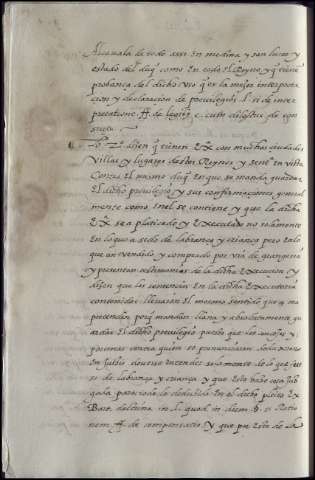 Alcauala de todo assi en medina y san lucar y
estado del duq como en todo el Reyno, y q tiene
probança del dicho vso q es la mejor interpreta
cion y declaracion de preuilegios l. si de inter
pretatione ff. de legibus c. cum dilectus de con
suetu.
Lo 2º dizen q tienen Ex con muchas ciudades
Villas y lugares destos Reynos, y sentª en vista
Contra El mismo duq en que se manda guardar
El dicho preuilegio y sus confirmaciones general
mente como enel se contiene y que la dicha
Exª sea platicado y executado no solamente
en lo que a sido de labrança y criança pero en lo
que an vendido y comprado por via de grangeria
y presentan testimonios de la dicha execucion y
dizen que las sentencias En la dicha Executoria
contenidas lleuaron El mismo sentido que se
pretende, porq mandan llana y absolutamente gu
ardar El dicho preuilegio puesto que los concejos y
personas contra quien se pronunciaron
en juizio deuerse entender solamente de lo que fue
se de labrança y criança y que esto haze cosa juz
gada pareciendo lo deduzido en el dicho pleito ex
Bart. doctrina in l. quod in diem §. si Ratio
nem ff. de compensatio. y que por esto de la